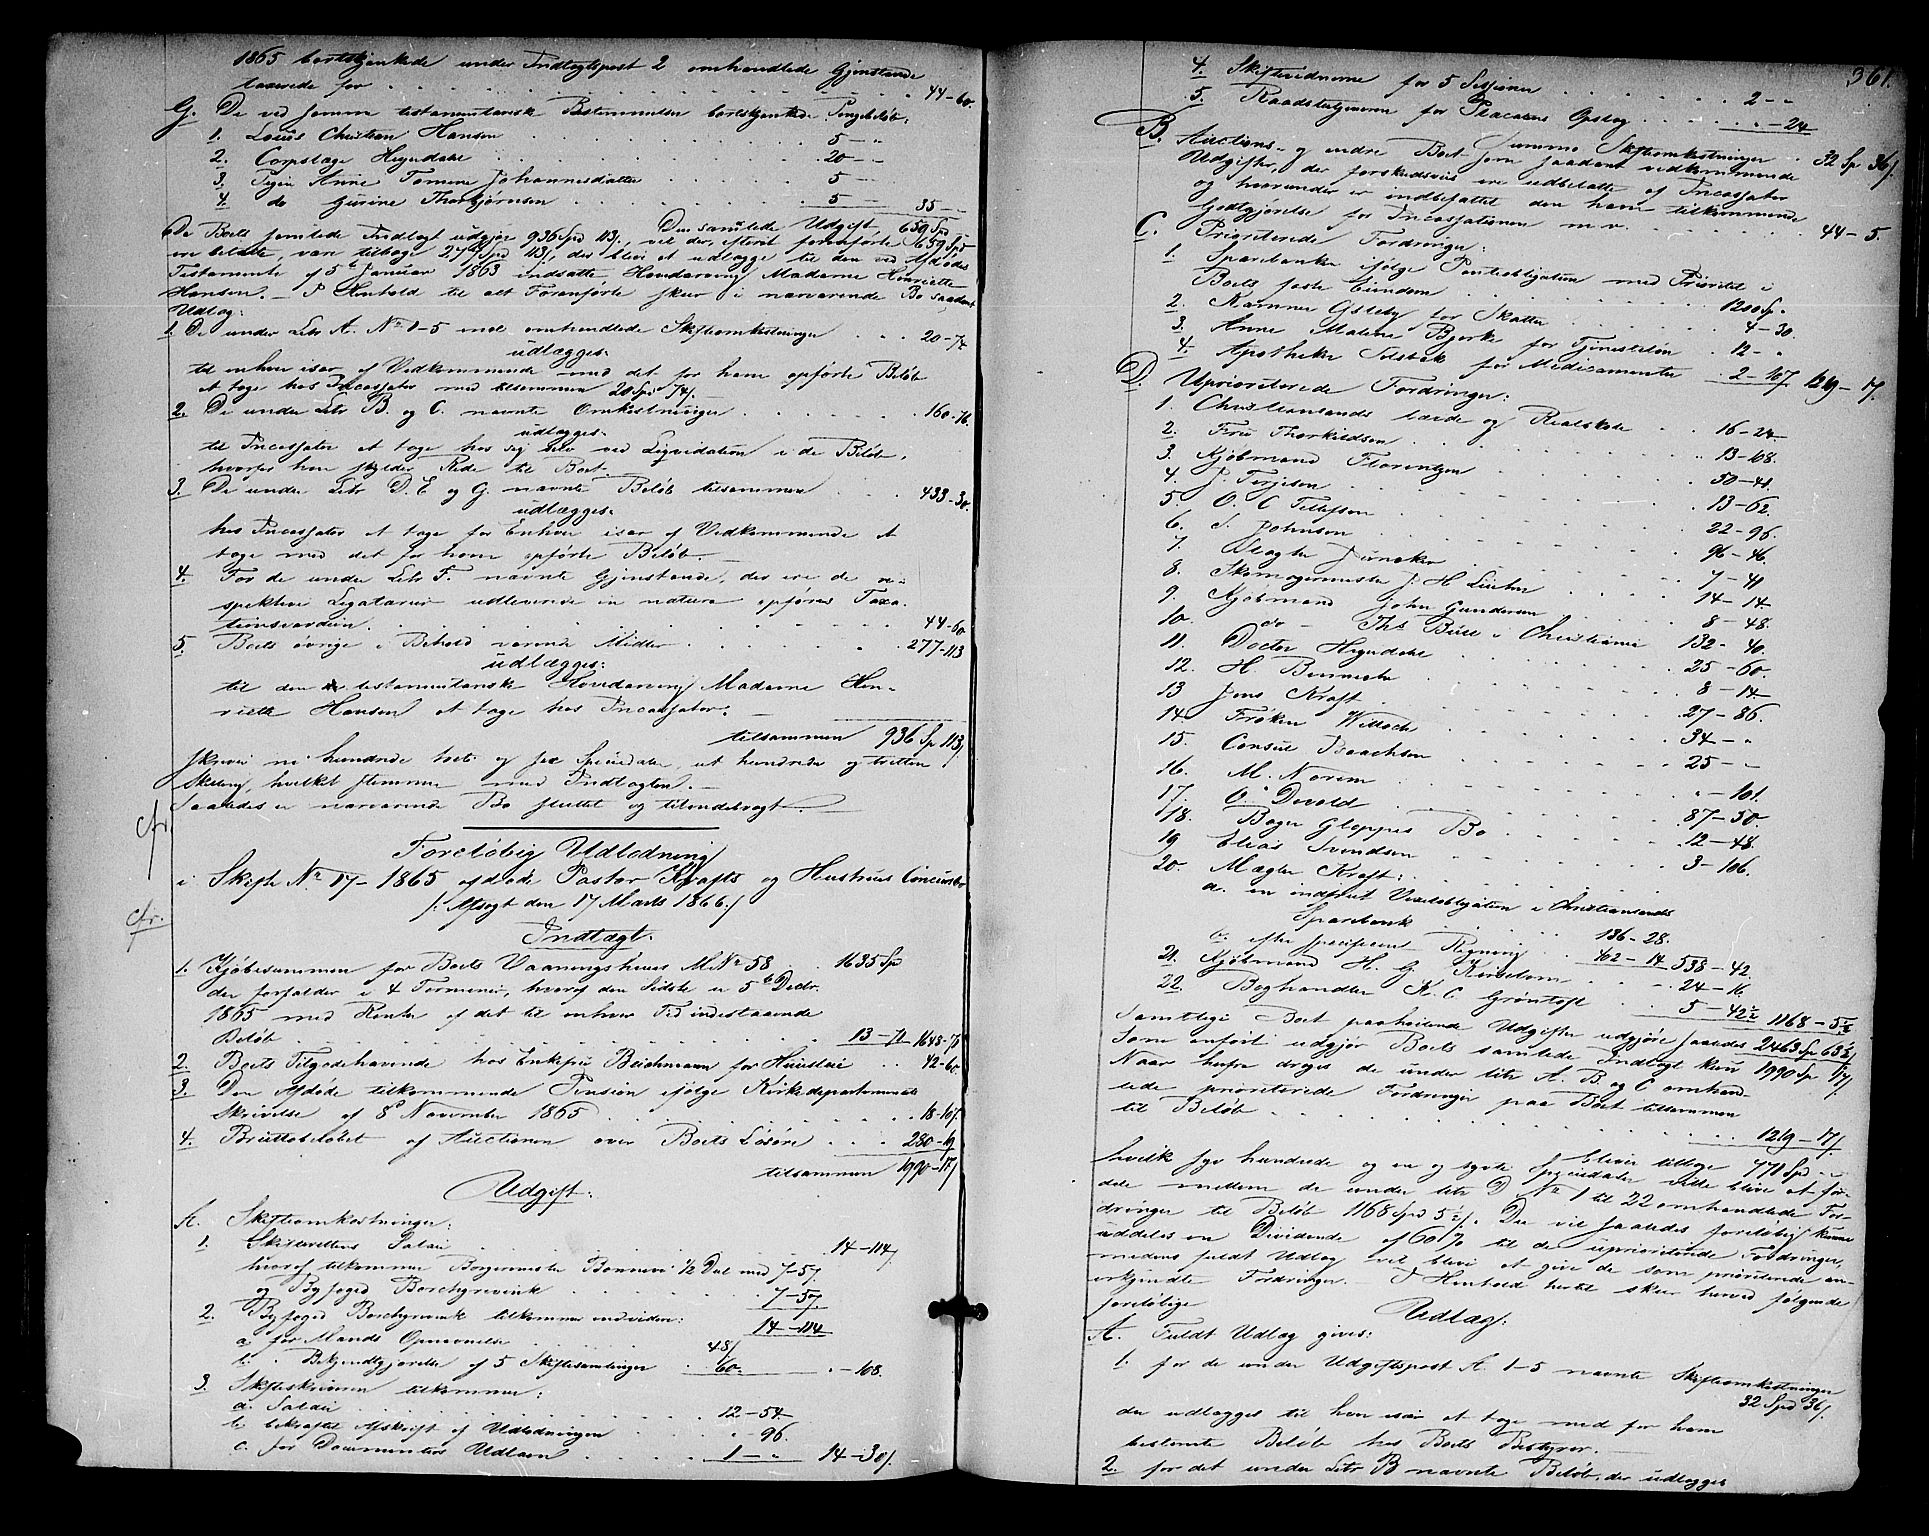 1865 bortskjænkede under Indtægtspost 2 omhandlede Gjenstande
taxerede for . . . 44-60.
G. De ved samme testamentariske Bestemmelse bortskjænkede Pengebeløb:
1. Louis Christian Hansen . . . 5 - "
2. Corpslæge Heyerdahl . . . 20 - -
3. Pigen Anne Tomine Johannesdatter . . . 5 -
4. do Gurine Thorbjørnsen . . . 5 - 35 - -
Den samlede Udgift, 659 Spd
Da Boets samlede Indtægt udgjør 936 Spd 113 ß, vil der, efterat foranførte 659 Spd
ere betalte, være tilbage 277 Spd 113 ß, der blive at udlægge til den ved Afdødes
Testamente af 5te Januar 1863 indsatte Hovedarving Madame Henriette
Hansen. - I Henhold til alt Foranførte skeer i nærværende Bo saadant
Udlæg:
1. De under Litr A. No 1-5 incl omhandlede Skifteomkostninger . . . 20-74
udlægges.
til enhver især af Vedkommende med det for ham opførte Beløb
at tage hos Incassator med tilsammen 20 Sp 74 ß.
2. De under Litr B. og C. nævnte Omkostninger . . . 160-76.
udlægges.
til Incassator at tage hos sig selv ved Liqvidation i de Beløb,
hvorfor han skylder Rede til Boet.
3. De under Litr D. E og G. nævnte Beløb tilsammen . . . 433-30.
udlægges.
hos Incassator at tage for Enhver især af Vedkommende at
tage med det for ham opførte Beløb.
4. For de under Litr F. nævnte Gjenstande, der ere de re-
spektive Legatarier udleverede in natura opføres Taxa-
tionsværdien . . . 44-60
5. Boets øvrige i Behold værende Midler . . . 277-113
udlægges:
til den testamentariske Hovedarving Madame Hen-
riette Hansen at tage hos Incassator.
tilsammen 936 Sp 113 ß
skriver ni hundrede tredive og sex Speciedaler, et hundrede og tretten
Skilling, hvilket stemmer med Indtægten.
Saaledes er nærværende Bo sluttet og tilendebragt.
Foreløbig Udlodning
i Skifte No 17 - 1865 afdøde Pastor Krafts og Hustrues Concursbo
/: Afsagt den 17 Marts 1866 :/
Indtægt.
1. Kjøbesummen for Boets Vaaningshuus M No 58 . . 1635 Sp
der forfalder i 4 Terminer, hvoraf den Sidste er 5te Decbr.
1865 med Renter af det til enhver Tid indestaaende
Beløb . . . 13-71 1648-71
2. Boets Tilgodehavende hos Enkefru Beichmann for Huusleie . . 42-60.
3. Den Afdøde tilkommende Pension ifølge Kirkedepartementets
Skrivelse af 8de November 1865 . . . 18-107.
4. Bruttobeløbet af Auctionen over Boets Løsøre . . . 280-19
tilsammen 1990-17 ß
Udgift:
A. Skifteomkostninger:
1. Skifterettens Salair . . . 14-114 ß
hvoraf tilkommer Borgermester Bonnevie 1/2 Del med 7-57.
og Byfoged Borchgrevink . . . 7-57.
14-114
2. Byfoged Borchgrevink tilkommer endvidere:
a. for Mands Opnævnelse . . . 48 ß
b. " Bekjendtgjørelse af 5 Skiftesamlinger . 60. " - 108.
3. Skifteskriveren tilkommer:
a. Salair . . . 12-54.
b. bekræftet Afskrift af Udlodningen . . . " - 96.
c. for Documenters Udlaan . . . 1 - " 14-30 ß.
361.
4. Skiftevidnerne for 5 Sessioner . . . 2 - "
5. Raadstutjeneren for Placaters Opslag . . . " - 24
Summa Skifteomkostninger . 32 Sp 36 ß
B. Auctions- og andre Boet som saadant vedkommende
Udgifter, der forskudsviis ere udbetalte af Incassator
og hvorunder er indbefattet den ham tilkommende
Godtgjørelse for Incassationen m.v. . . . 44-5.
C. Prioriterede Fordringer:
1. Sparebanken ifølge Pantobligation med Prioritet i
Boets faste Eiendom . . . 1200 Sp.
2. Kæmner Gsleby for Skatter . . . 4-30.
3. Anne Malene Bjerke for Tjenesteløn . 12 - "
4. Apotheker Tolsbek for Medicamenter . . 2-107 1219-17.
D. Uprioriterede Fordringer:
1. Christiansands lærde og Realskole . . 16-24
2. Fru Thorkildsen . . . 13-108.
3. Kjøbmand Florentzen . . . 50-41.
4. J. Terjesen . . . 13-62.
5. O. C Tellefsen . . . 22-96.
6. S. Johnsen . . . 96-46.
7. Slagter Juncker . . . 7-41
8. Skomagermester J. H. Linthn . . . 14-14
9. Kjøbmand John Gundersen . . . 8-48.
10. do - Ths Bull i Christiania 132-40.
11. Doctor Heyerdahl . . . 25-60.
12. H. Bennecke . . . 8-14
13 Jens Kraft . . . 27-86.
14. Frøken Willoch . . . 34 - "
15. Consul Isaachsen . . . 25 - "
16. M. Norem . . . " - 101.
17. O. Devold . . . 87-50.
18. Bager Gloppes Bo . . . 12-48.
19 Elias Svendsen . . . 3-106.
20. Mægler Kraft:
a. en indfriet Vexelobligation i Christiansands
Sparebank . . . 136-28.
b. efter specificeret Regning . . 402-14 538-42.
21. Kjøbmand H. G. Reinelsen . . . 24-16.
22. Boghandler K. C. Grøntoft . . . 5-42½ 1168-5½
Samtlige Boet paahvilende Udgifter udgjøre saaledes 2463 Sp 63½ ß
Som anført udgjør Boets samlede Indtægt kun 1990 Sp 17 ß.
Naar herfra drages de under Litr A. B. og C omhand-
lede prioriterede Fordringer paa Boet tilsammen
til Beløb . . . 1219-17 ß.
bliver tilbage 771 Spd - -
hvilke syv hundrede og en og syvti Speciedaler ville blive at for-
dele mellem de under Litr D No 1 til 22 omhandlede For-
dringer til Beløb 1168 Spd 5½ ß. Der vil saaledes foreløbig kunne
uddeles en Dividende af 60 % til de uprioriterede Fordringer,
medens fuldt Udlæg vil blive at give de som prioriterede an-
erkjendte Fordringer. - I Henhold hertil skeer herved følgende
foreløbige
Udlæg:
A. Fuldt Udlæg gives:
1. for de under Udgiftspost A 1-5 nævnte Skifteomkostninger
32 Spd 36 ß.
der udlægges til hver især at tage med for ham
bestemte Beløb hos Boets Bestyrer.
2. for det under Litr B nævnte Beløb, der udlægges